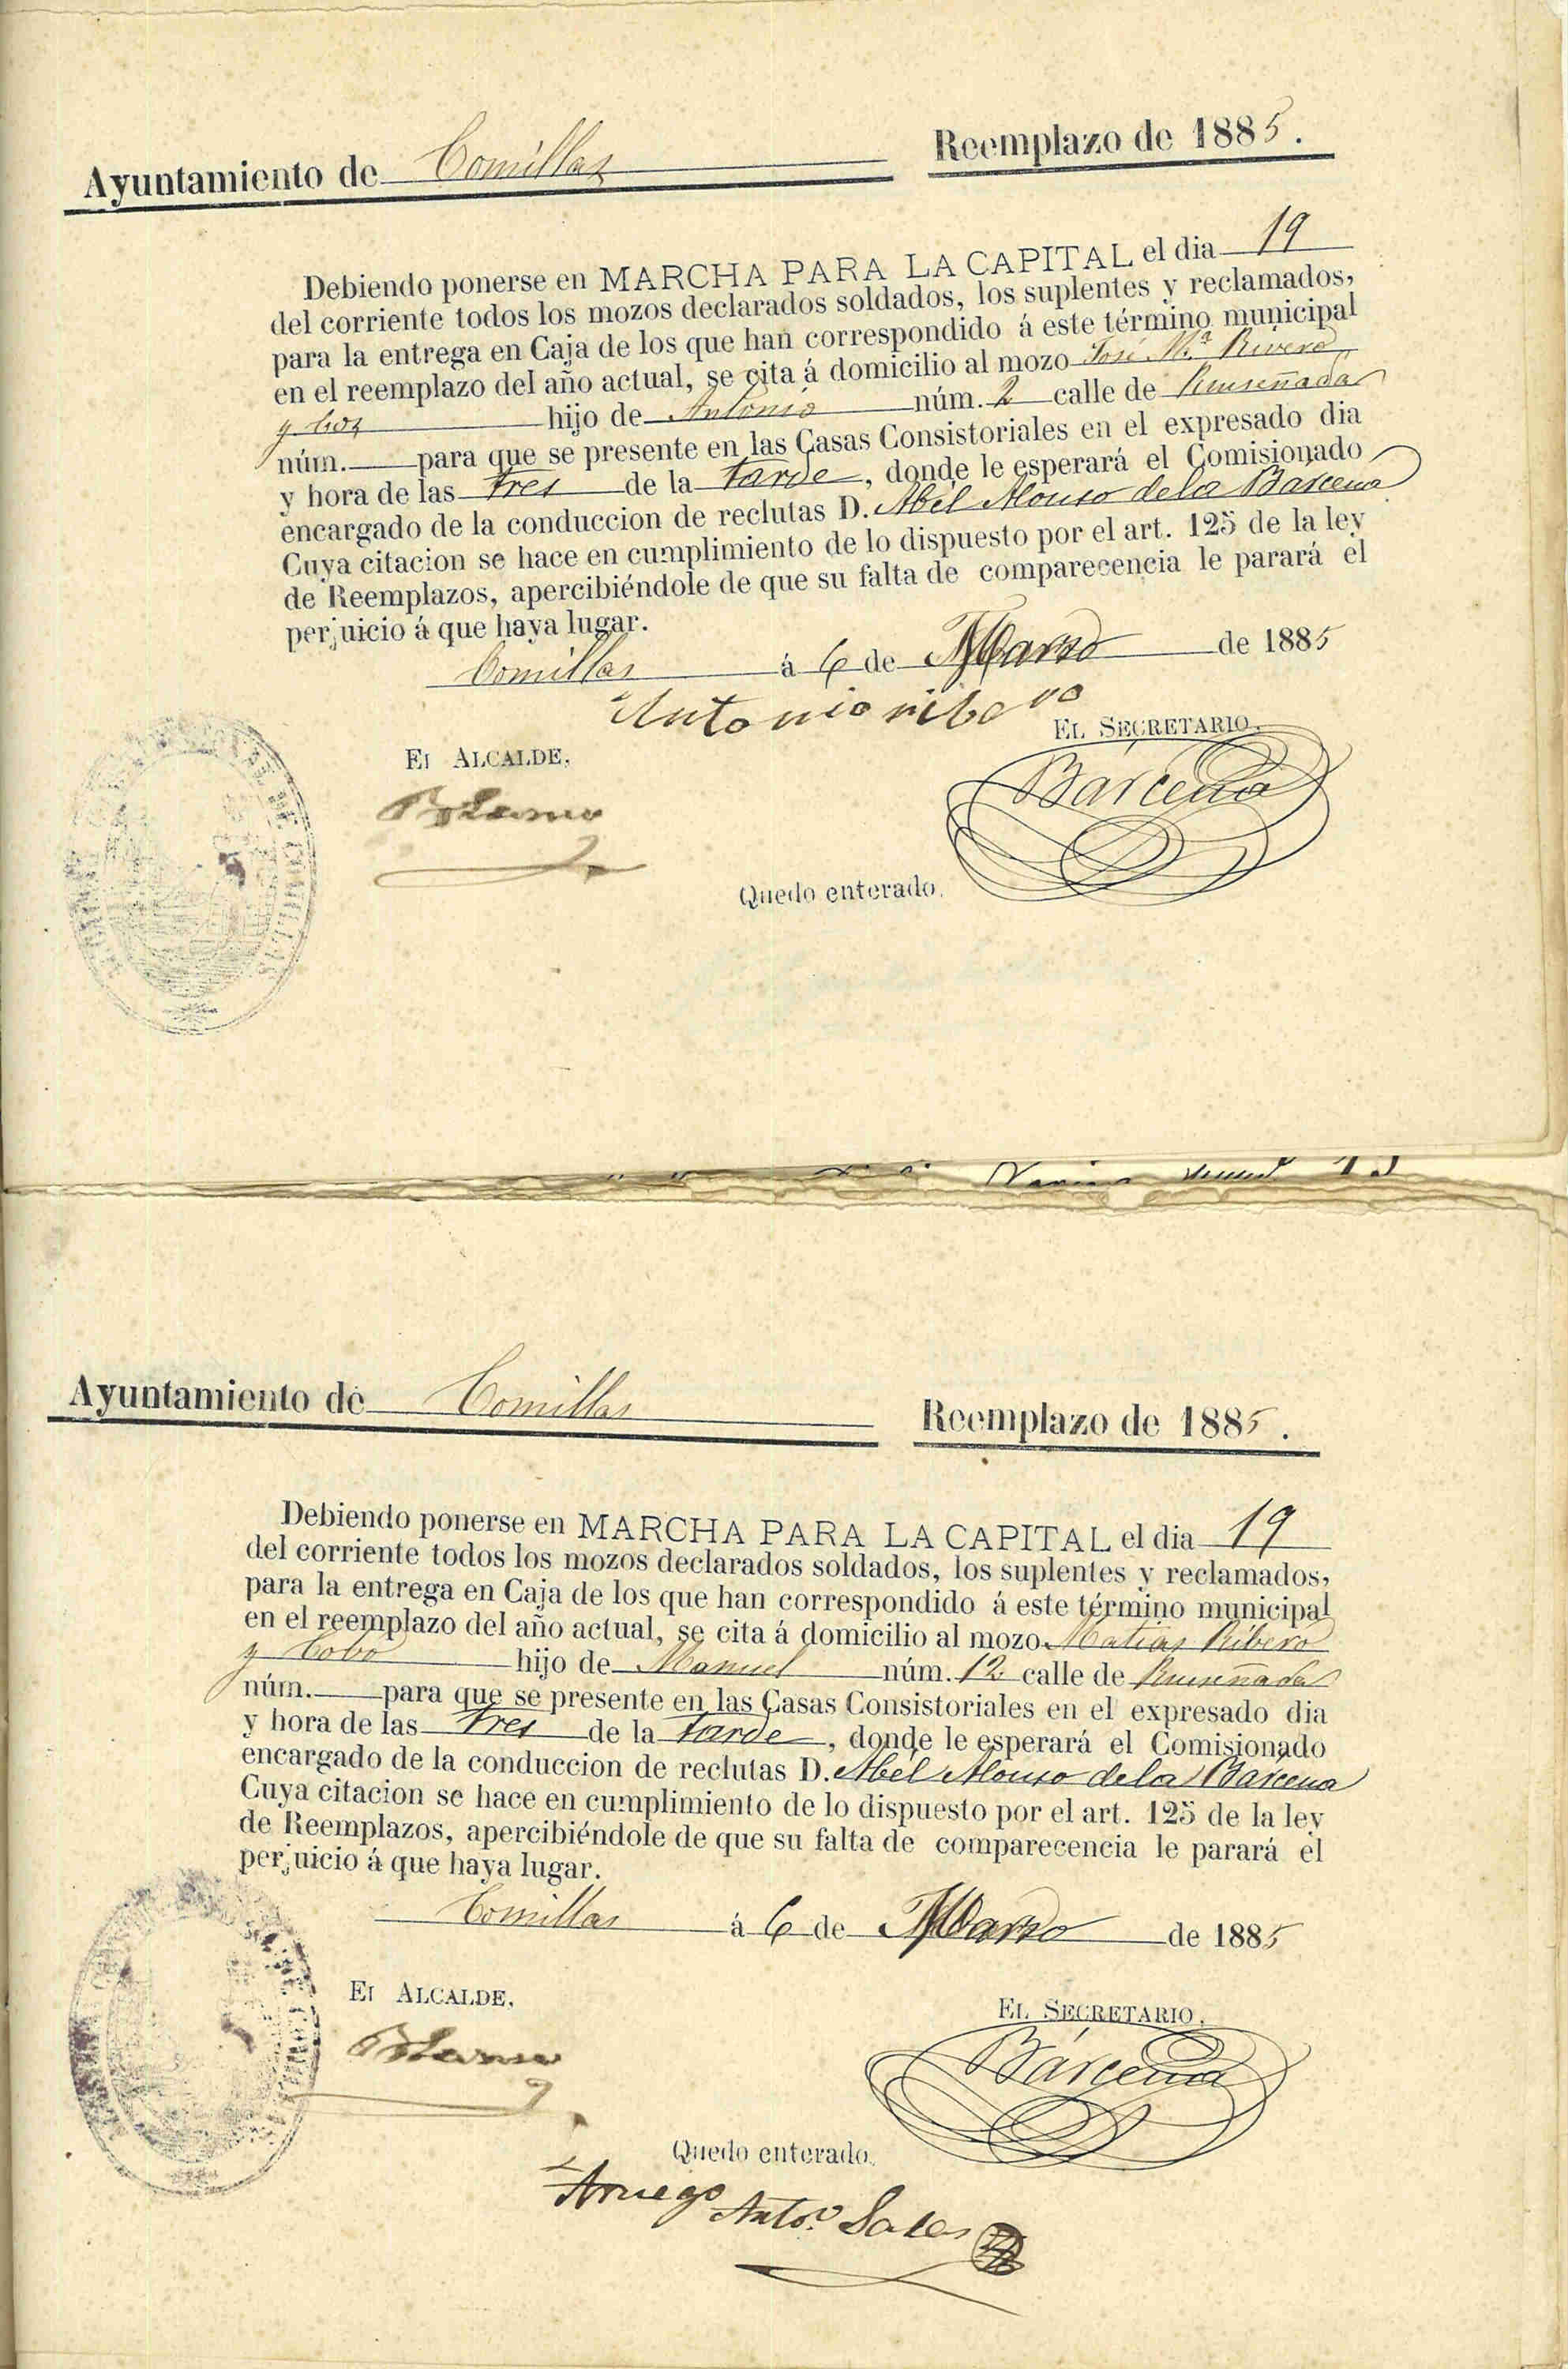 Ayuntamiento de Comillas Reemplazo de 1885.
Debiendo ponerse en MARCHA PARA LA CAPITAL el dia 19
del corriente todos los mozos declarados soldados, los suplentes y reclamados,
para la entrega en Caja de los que han correspondido á este término municipal
en el reemplazo del año actual, se cita á domicilio al mozo José M.ª Rivero
y hijo de Antonio núm. 2 calle de Ruiseñada
núm. para que se presente en las Casas Consistoriales en el expresado dia
y hora de las tres de la tarde, donde le esperará el Comisionado
encargado de la conduccion de reclutas D. Abel Alonso de la Bárcena
Cuya citacion se hace en cumplimiento de lo dispuesto por el art. 125 de la ley
de Reemplazos, apercibiéndole de que su falta de comparecencia le parará el
perjuicio á que haya lugar.
Comillas á 6 de Marzo de 1885
Antonio ribero
El Alcalde, El Secretario,
Bárcena
Quedo enterado.
Ayuntamiento de Comillas Reemplazo de 1885.
Debiendo ponerse en MARCHA PARA LA CAPITAL el dia 19
del corriente todos los mozos declarados soldados, los suplentes y reclamados,
para la entrega en Caja de los que han correspondido á este término municipal
en el reemplazo del año actual, se cita á domicilio al mozo Matias Ribero
y Cobo hijo de Manuel núm. 12 calle de Ruiseñada
núm. para que se presente en las Casas Consistoriales en el expresado dia
y hora de las tres de la tarde, donde le esperará el Comisionado
encargado de la conduccion de reclutas D. Abel Alonso de la Bárcena
Cuya citacion se hace en cumplimiento de lo dispuesto por el art. 125 de la ley
de Reemplazos, apercibiéndole de que su falta de comparecencia le parará el
perjuicio á que haya lugar.
Comillas á 6 de Marzo de 1885
El Alcalde, El Secretario,
Bárcena
Quedo enterado.
Aruego Anto.º Sales